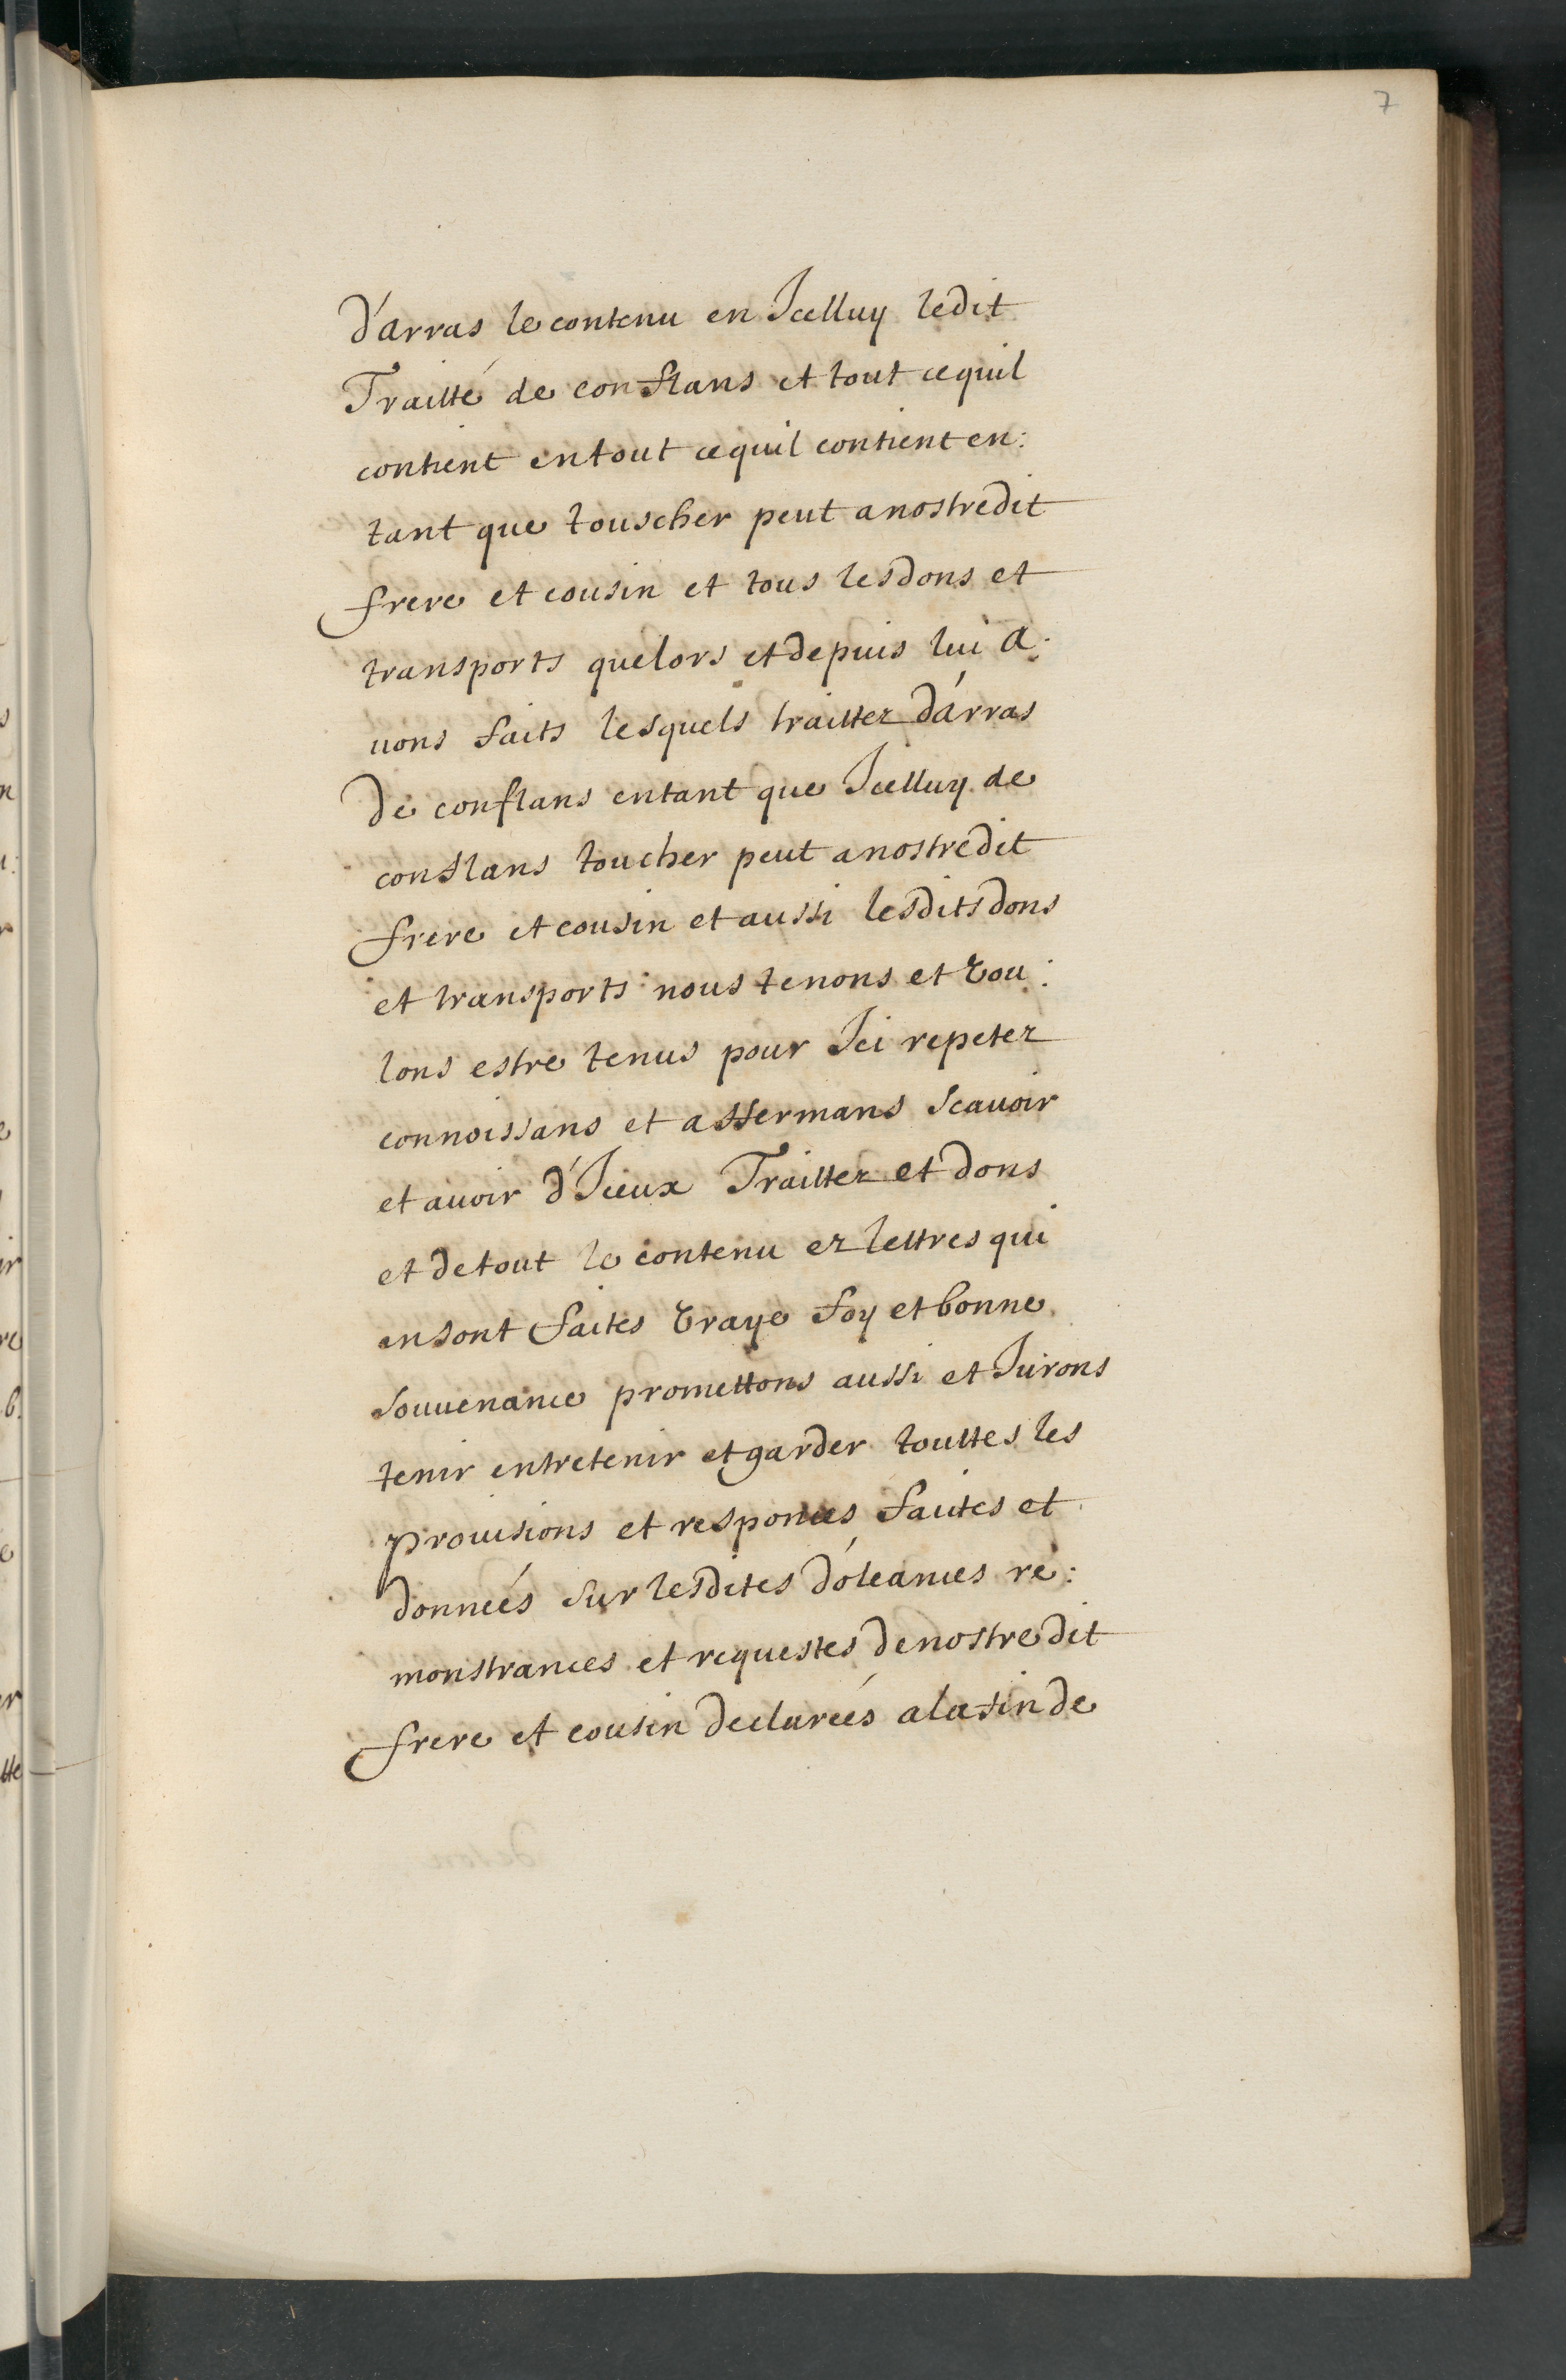 7
d'arras le contenu en Jcelluy ledit
Traitté de conflans et tout cequil
contient entout cequil contient en:
tant que touscher peut anostredit
frere et cousin et tous lesdons et
transports quelors et depuis lui a:
uons faits lesquels traittez d'arras
de conflans entant que Jcelluy de
conflans toucher peut anostredit
frere et cousin et aussi lesdits dons
et transports nous tenons et vou:
lons estre tenus pour Jci repetez
connoissans et affermans scauoir
et auoir d'Jceux Traittez et dons
et detout le contenu ez lettres qui
ensont faites vraye foy et bonne
souuenance promettons aussi et Jurons
tenir entretenir et garder touttes les
prouisions et responces faites et
donneés sur lesdites doleances re:
monstrances et requestes denostredit
frere et cousin declareés alafin de